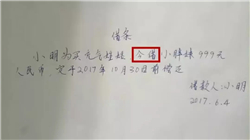 借条
小明为买充气娃娃 今借 小胖妹 999元
人民币,定于2017年10月30日前偿还
借款人:小明
2017.6.4